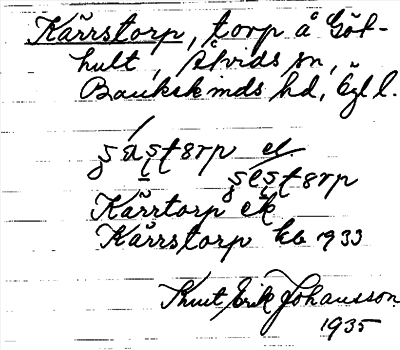 Kärrstorp, torp å Göt-
hult, Åtvids sn,
Bankekinds hd, Ögl l.
el.
Kärrtorp ek
Kärrstorp kb 1933
Knut Erik Johansson
1935